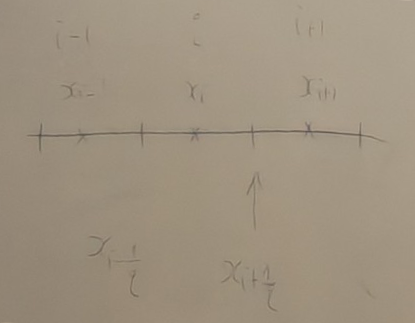 i-1 i i+1
x_{i-} x_i x_{i+1}
x_{i-\frac{1}{2}} x_{i+\frac{1}{2}}